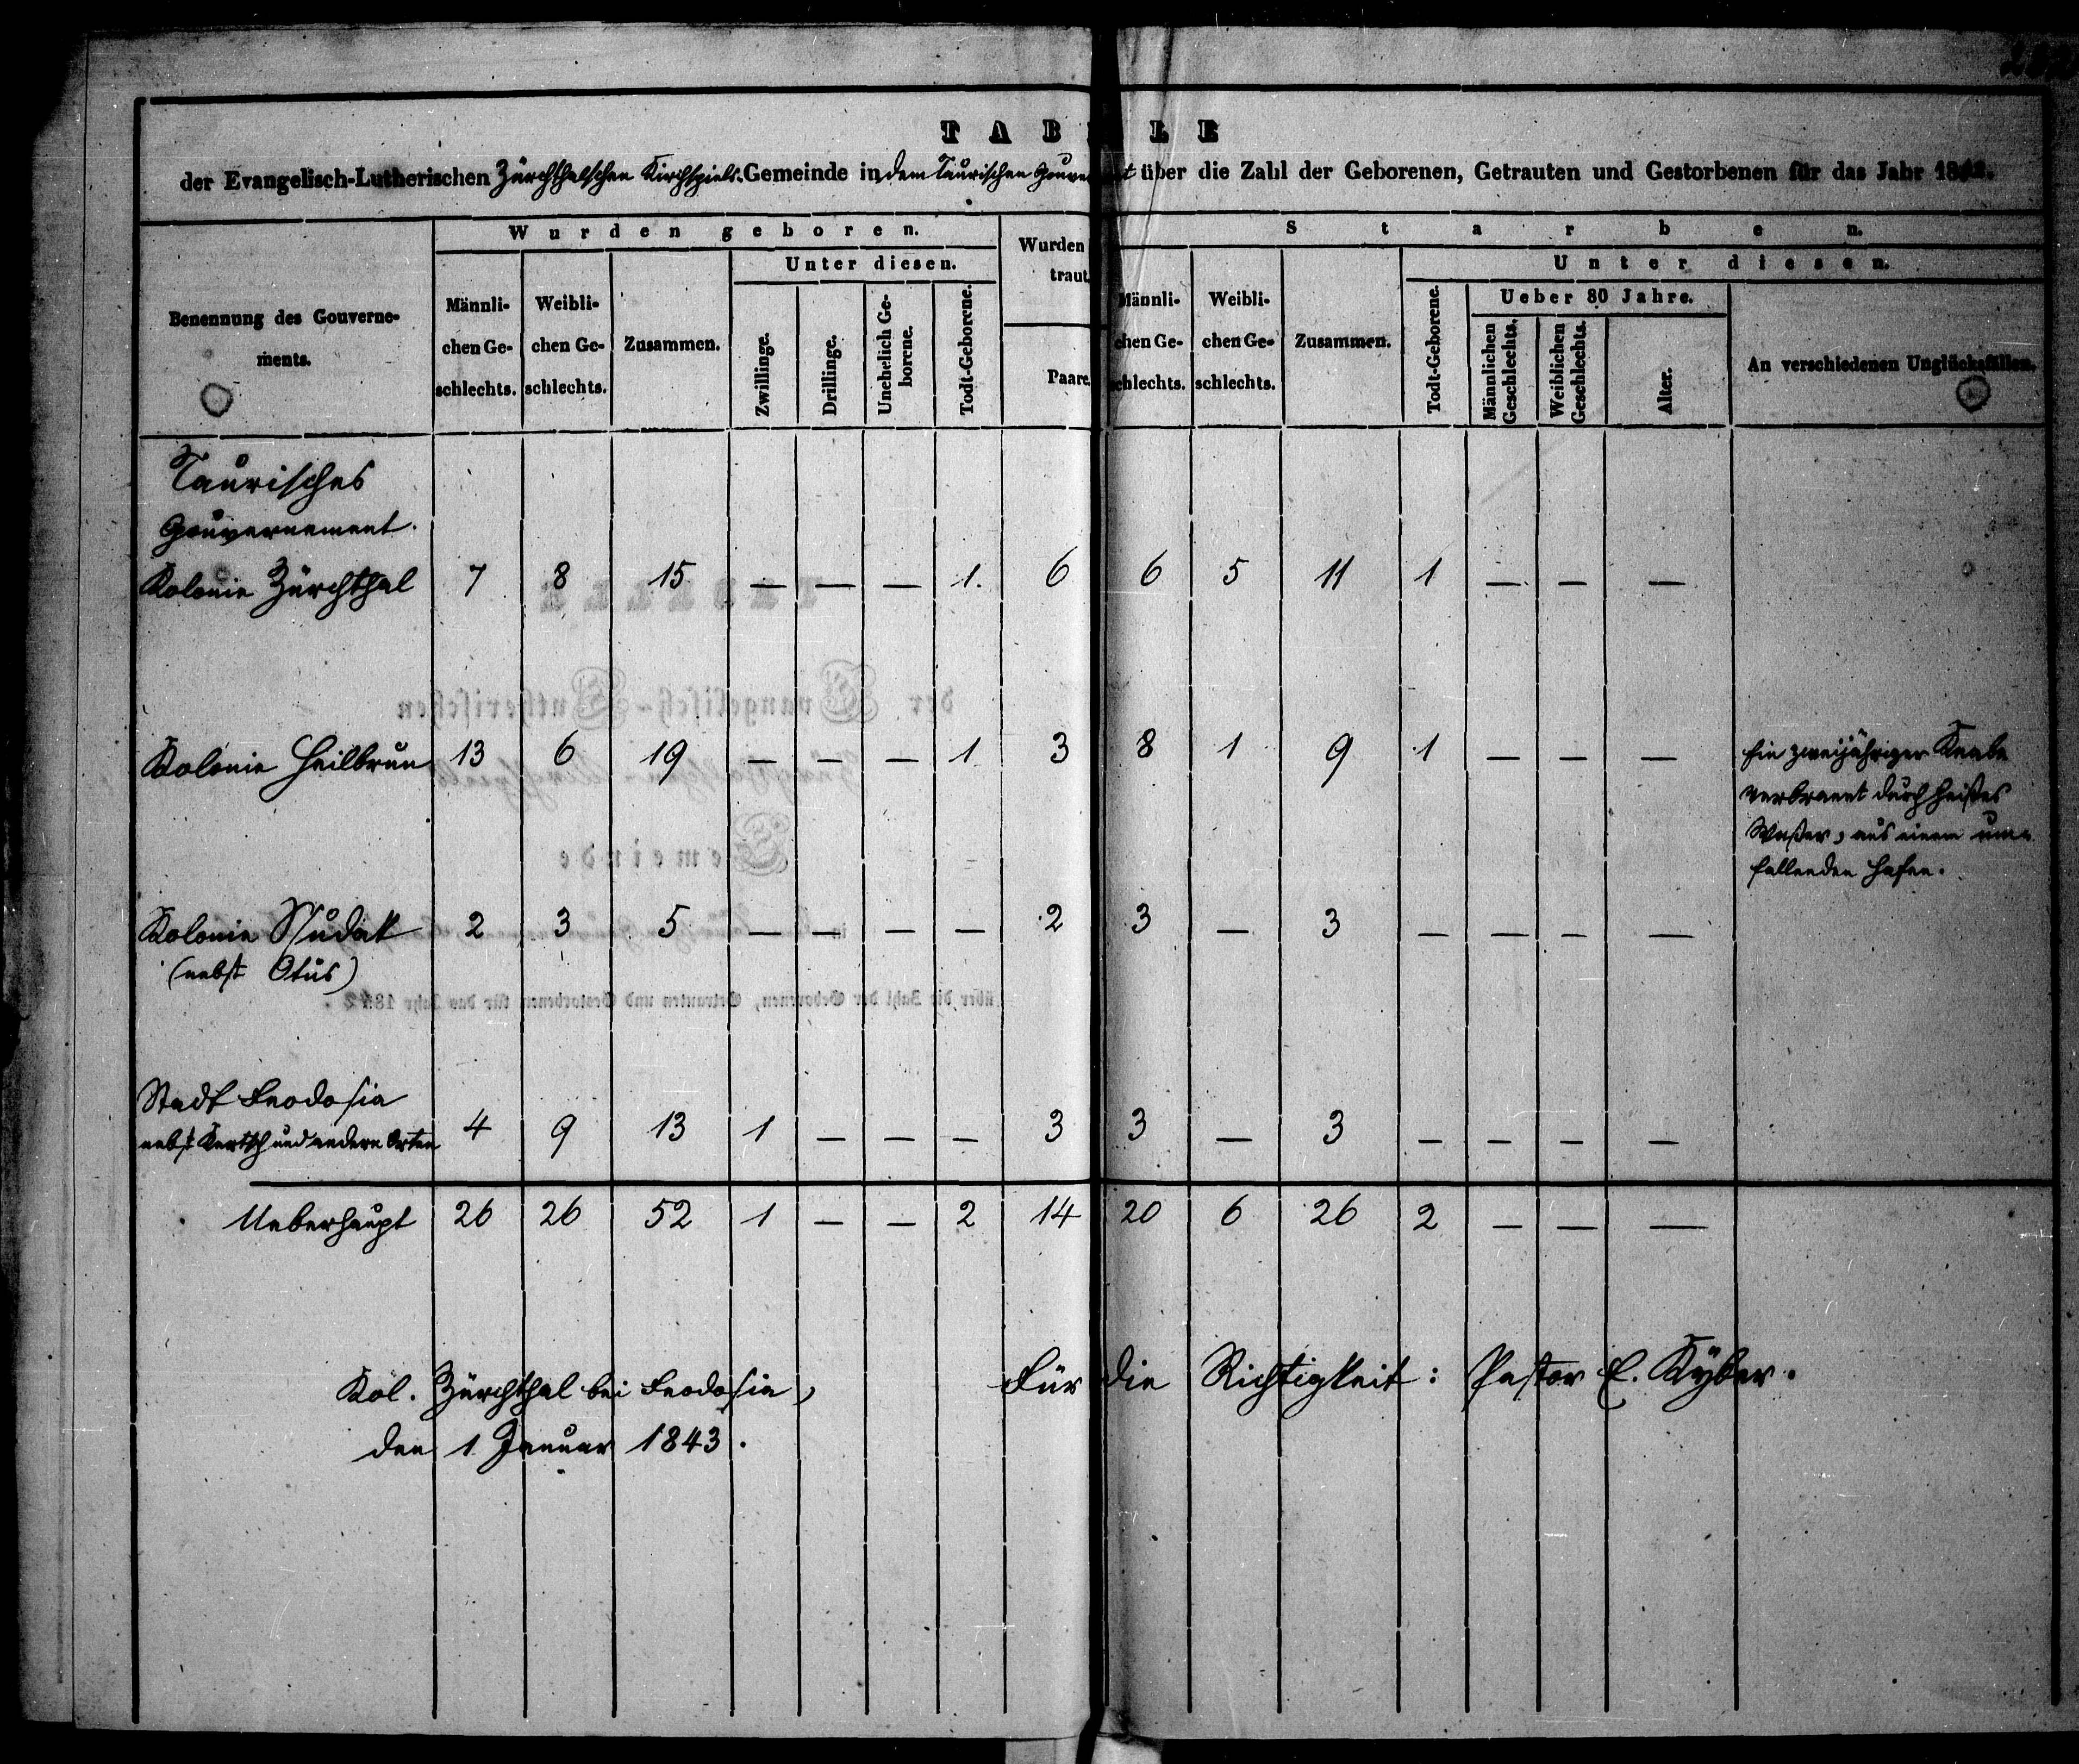 TABELLE
der Evangelisch-Lutherischen Zürchthalschen Kirchspiels-Gemeinde in dem Taurischen Gouvernement über die Zahl der Geborenen, Getrauten und Gestorbenen für das Jahr 1842.
Benennung des Gouvernements. | Wurden geboren. | Wurden traut. | Starben.
Unter diesen. | Unter diesen.
Männlichen Geschlechts. | Weiblichen Geschlechts. | Zusammen. | Zwillinge. | Drillinge. | Unehelich Geborene. | Todt-Geborene. | Paare. | Männlichen Geschlechts. | Weiblichen Geschlechts. | Zusammen. | Todt-Geborene. | Ueber 80 Jahre. | Männlichen Geschlechts. | Weiblichen Geschlechts. | Alter. | An verschiedenen Unglücksfällen.
Taurisches
Gouvernement.
Kolonie Zürchthal 7 8 15 — — — 1. 6 6 5 11 1 — — —
Kolonie Heilbrun 13 6 19 — — — 1 3 8 1 9 1 — — — Ein zweijähriger Knabe
verbrannt durch heißes
Waßer, aus einem um-
fallenden Hafen.
Kolonie Sudak 2 3 5 — — — — 2 3 — 3 — — — —
(nebst Otus)
Stadt Feodosia
nebst Kertsch und andern Orten 4 9 13 1 — — — 3 3 — 3 — — — —
Ueberhaupt 26 26 52 1 — — 2 14 20 6 26 2 — — —
Kol. Zürchthal bei Feodosia,
den 1 Januar 1843.
Für die Richtigkeit: Pastor E. Kyber.